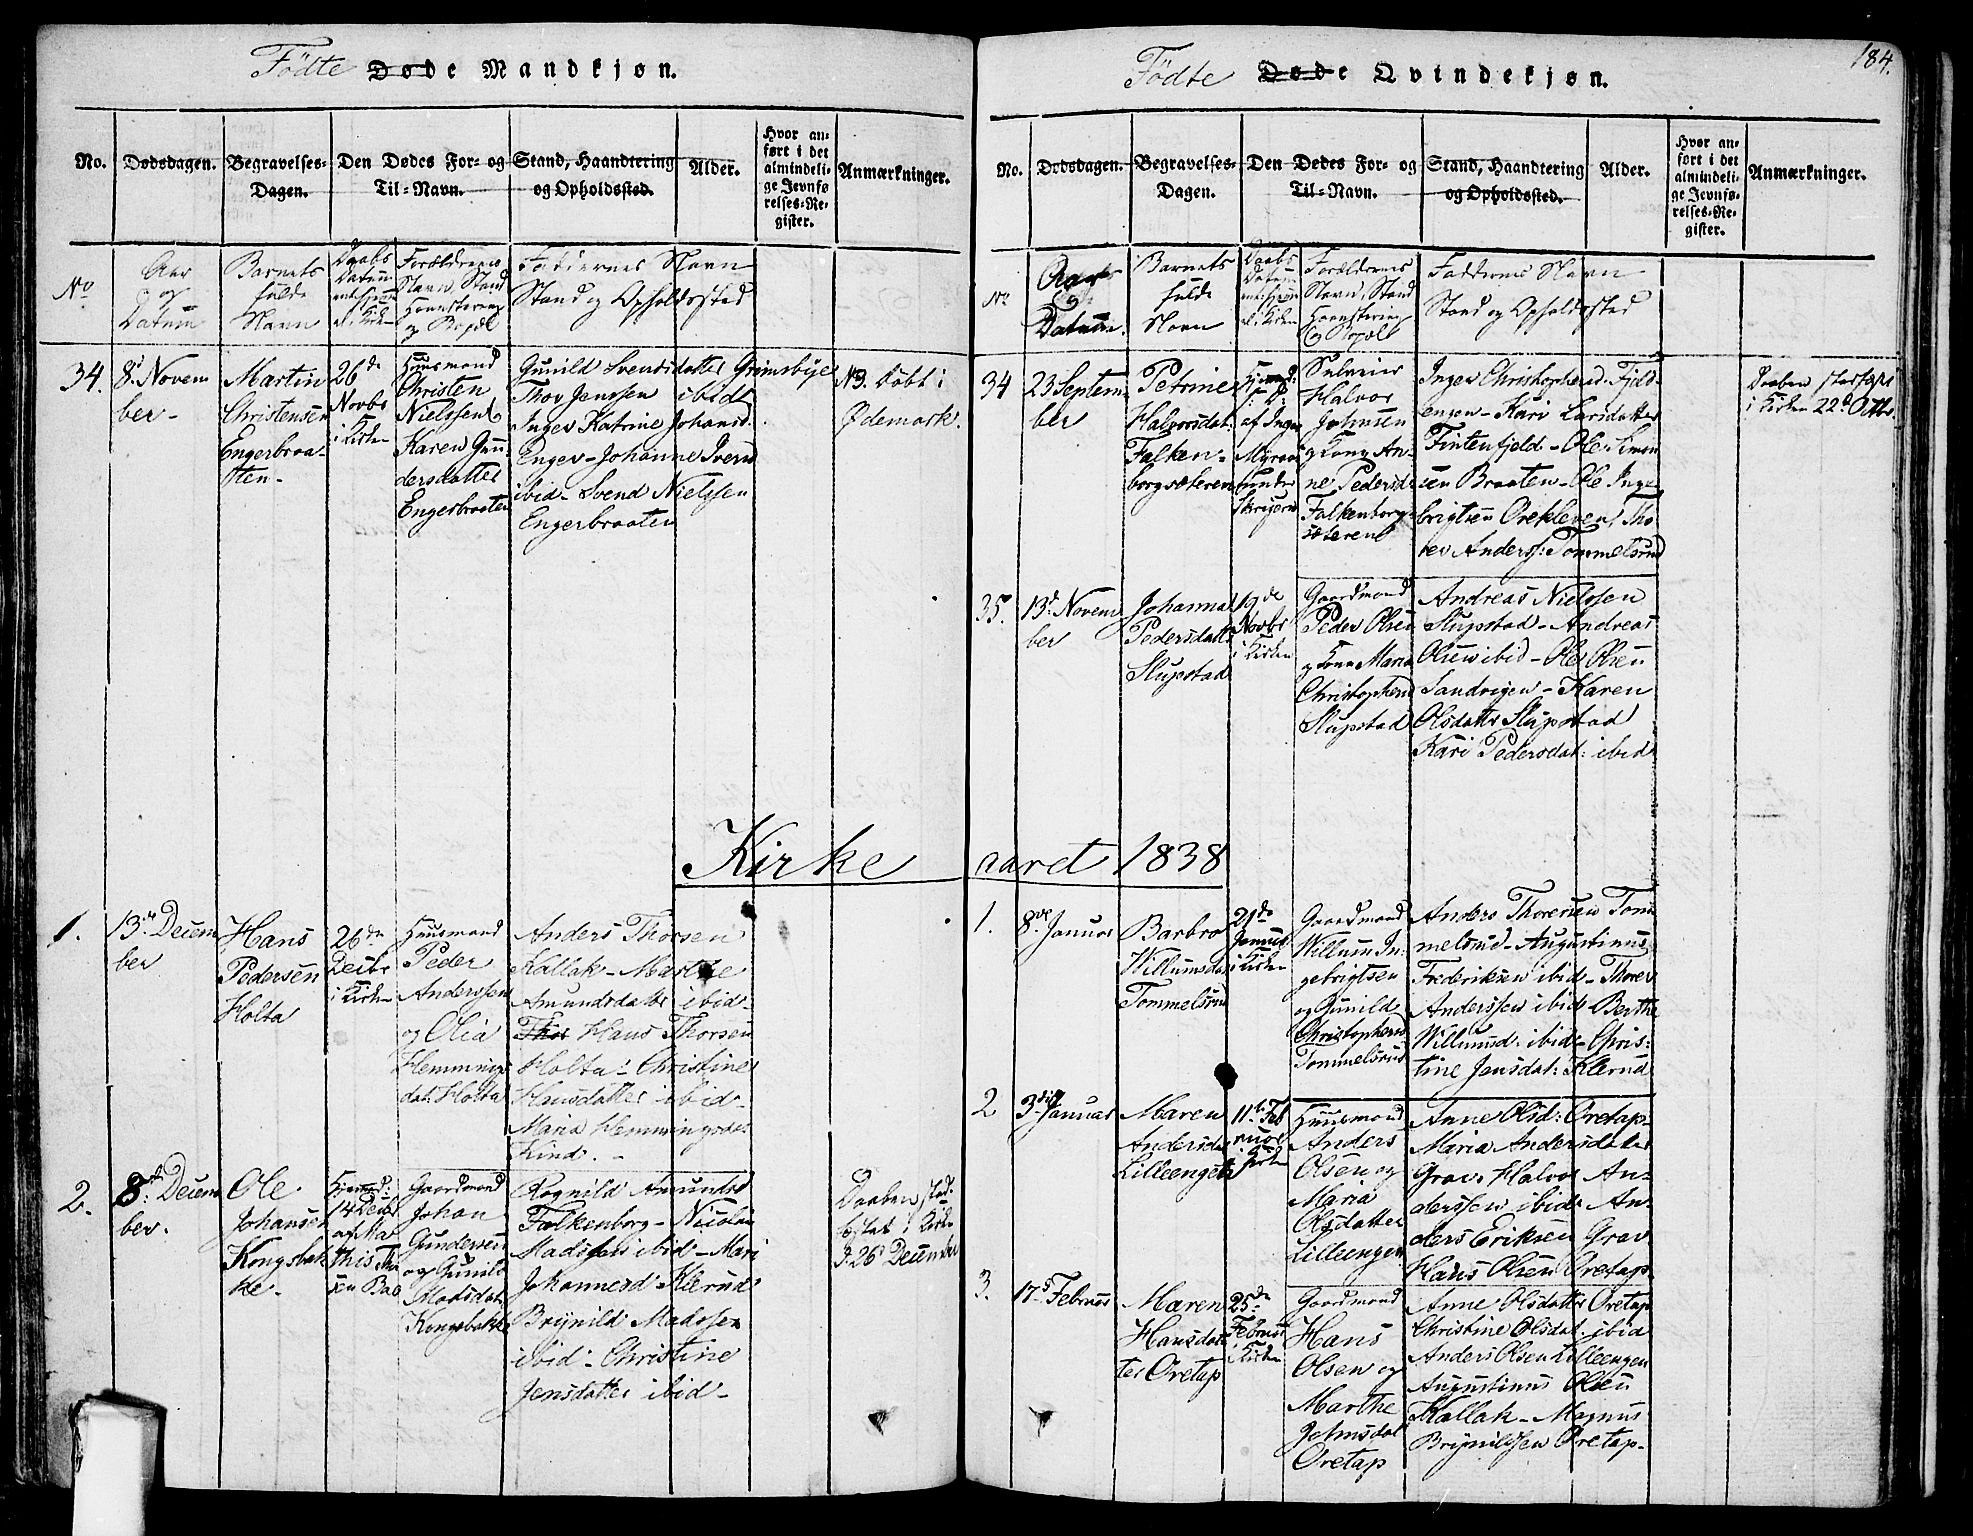 Födte Døde Mandkjøn.
No.
Dødsdagen.
Begravelses-
Dagen.
Den Dødes For- og
Til-Navn.
Stand, Haandtering
og Opholdssted.
Alder.
Hvor an-
ført i det
almindeli-
ge Jevnfø-
relses-Re-
gister.
Anmærkninger.
No
Aar
og
Datum
Barnets
fulde
Navn
Daabs
Datum
Forældrenes
Navn, Stand
og Bopæl
Faddernes Navn
Stand og Opholdssted
34.
8. Novem
ber-
Martin
Christensen
Engerbraa-
ten-
26de
Novbr
i Kirken
Huusmand
Christen
Nielssen
Karen Gun-
dersdatter
Engerbraaten
Gunild Svensdatter Grimsbye
Thov Jenssen ibid
Inger Katrine Johansd
Enger- Johanne Ivers
ibid- Svend Nielssen
Engerbraaten
NB. Døbt i
Ødemark.
Kirke
1.
13. Decem
ber
Hans
Pedersen
Holta
26de
Decbr
i Kirken
Huusmand
Peder
Anderssen
og Olia
Hemmings
dat: Holta
Anders Thorsen
Kallak- Marthe
Amundsdatter ibid-
Thor Hans Thorsen
Holta- Christine
Hansdatter ibid-
Maria Hemmingsdat
Kind.-
2.
8. Decem
ber.
Ole
Johansen
Kongsbak
ke-
Hjemmed:
14 Decbr
af Ma
this Th
sen Baa
Gaardmand
Johan
Gundersen
og Gunild
Madsdat:
Kongsbakke
Ragnild Amundsd
Falkenborg- Nicolai
Madssen ibid- Mari
Johannesd: Klerud
Brynild Madssen
ibid- Christine
Jensdatter ibid-
Daaben stad-
fæstet i Kirken
d. 26 December
184.
Födte Døde Qvindekjøn.
No.
Dødsdagen.
Begravelses-
Dagen.
Den Dødes For- og
Til-Navn.
Stand, Haandtering
og Opholdssted.
Alder.
Hvor an-
ført i det
almindeli-
ge Jevnfø-
relses-Re-
gister.
Anmærkninger.
No
Aar
og
Datum.
Barnets
fulde
Navn
Daabs
Datum
Forældrenes
Navn, Stand
og Bopæl
Faddernes Navn
Stand og Opholdssted
34
23 Septem
ber
Petrine
Halvorsdat:
Falken-
borgsæteren
af Inger
Myraen
under
Halvor
Johnsen
og Kone An-
ne Pedersd
Falkenborg-
sæteren
Inger Christophersd. Fjeld-
engen- Kari Larsdatter
Fintenfjeld- Ole Simon
sen Braaten- Ole Inge-
brigtsen Orekleven, Tho-
rer Anderss: Tommelsrud
Daaben stadfæstet
i Kirken 22d Octbr.
35.
13d Novem
ber
Johanna
Pedersdatt:
Slupstad
19de
Novbr
i Kirken
Gaardmand
Peder Olsen
og Kone Maria
Christophersd
Slupstad
Andreas Nielssen
Slupstad- Andreas
Olsen ibid- Ole Olsen
Sandvigen- Karen
Olsdatter Slupstad
Kari Pedersdat: ibid
aaret 1838
1.
8de Januar
Barbro
Willumsdat
Tommelsrud
21de
Januar
i Kirken
Gaardmand
Willum In-
gebrigtsen
og Gunild
Christophersd
Tommelsrud
Anders Thoresen Tom
melsrud- Augustinus
Frederiksen ibid- Thorer
Anderssen ibid- Berthe
Willumsd: ibid- Chris-
tine Jensdat: Klerud
2
3die Januar
Maren
Andersdat
Lilleengen
11te Feb
ruar
i Kirken
Huusmand
Anders
Olsen og
Maria
Olsdatter
Lilleengen
Anne Olsd: Oretap-
Maria Andersdatter
Grav- Halvor An-
derssen ibid- An-
ders Eriksen Grav
Hans Olsen Oretap-
3.
17. Februar
Maren
Hansdat
ter Oretap
25de
Februar
i Kirken
Gaardmand
Hans
Olsen og
Marthe
Johnsdat
Oretap
Anne Olsdatter Oretap
Christine Olsdat: ibid
Anders Olsen Lilleengen
Augustinus Olsen
Kallak- Magnus
Brynildssen Oretap-